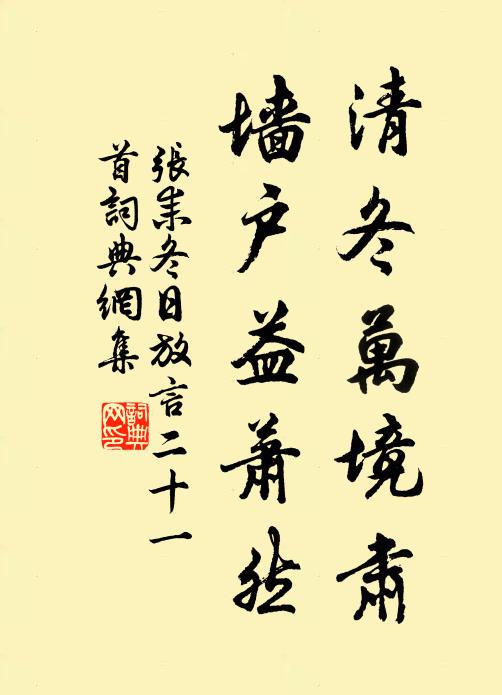 清冬萬境肅
墻户益蕭然
張耒冬日放言二十一
首詞典網集
詞典
网印